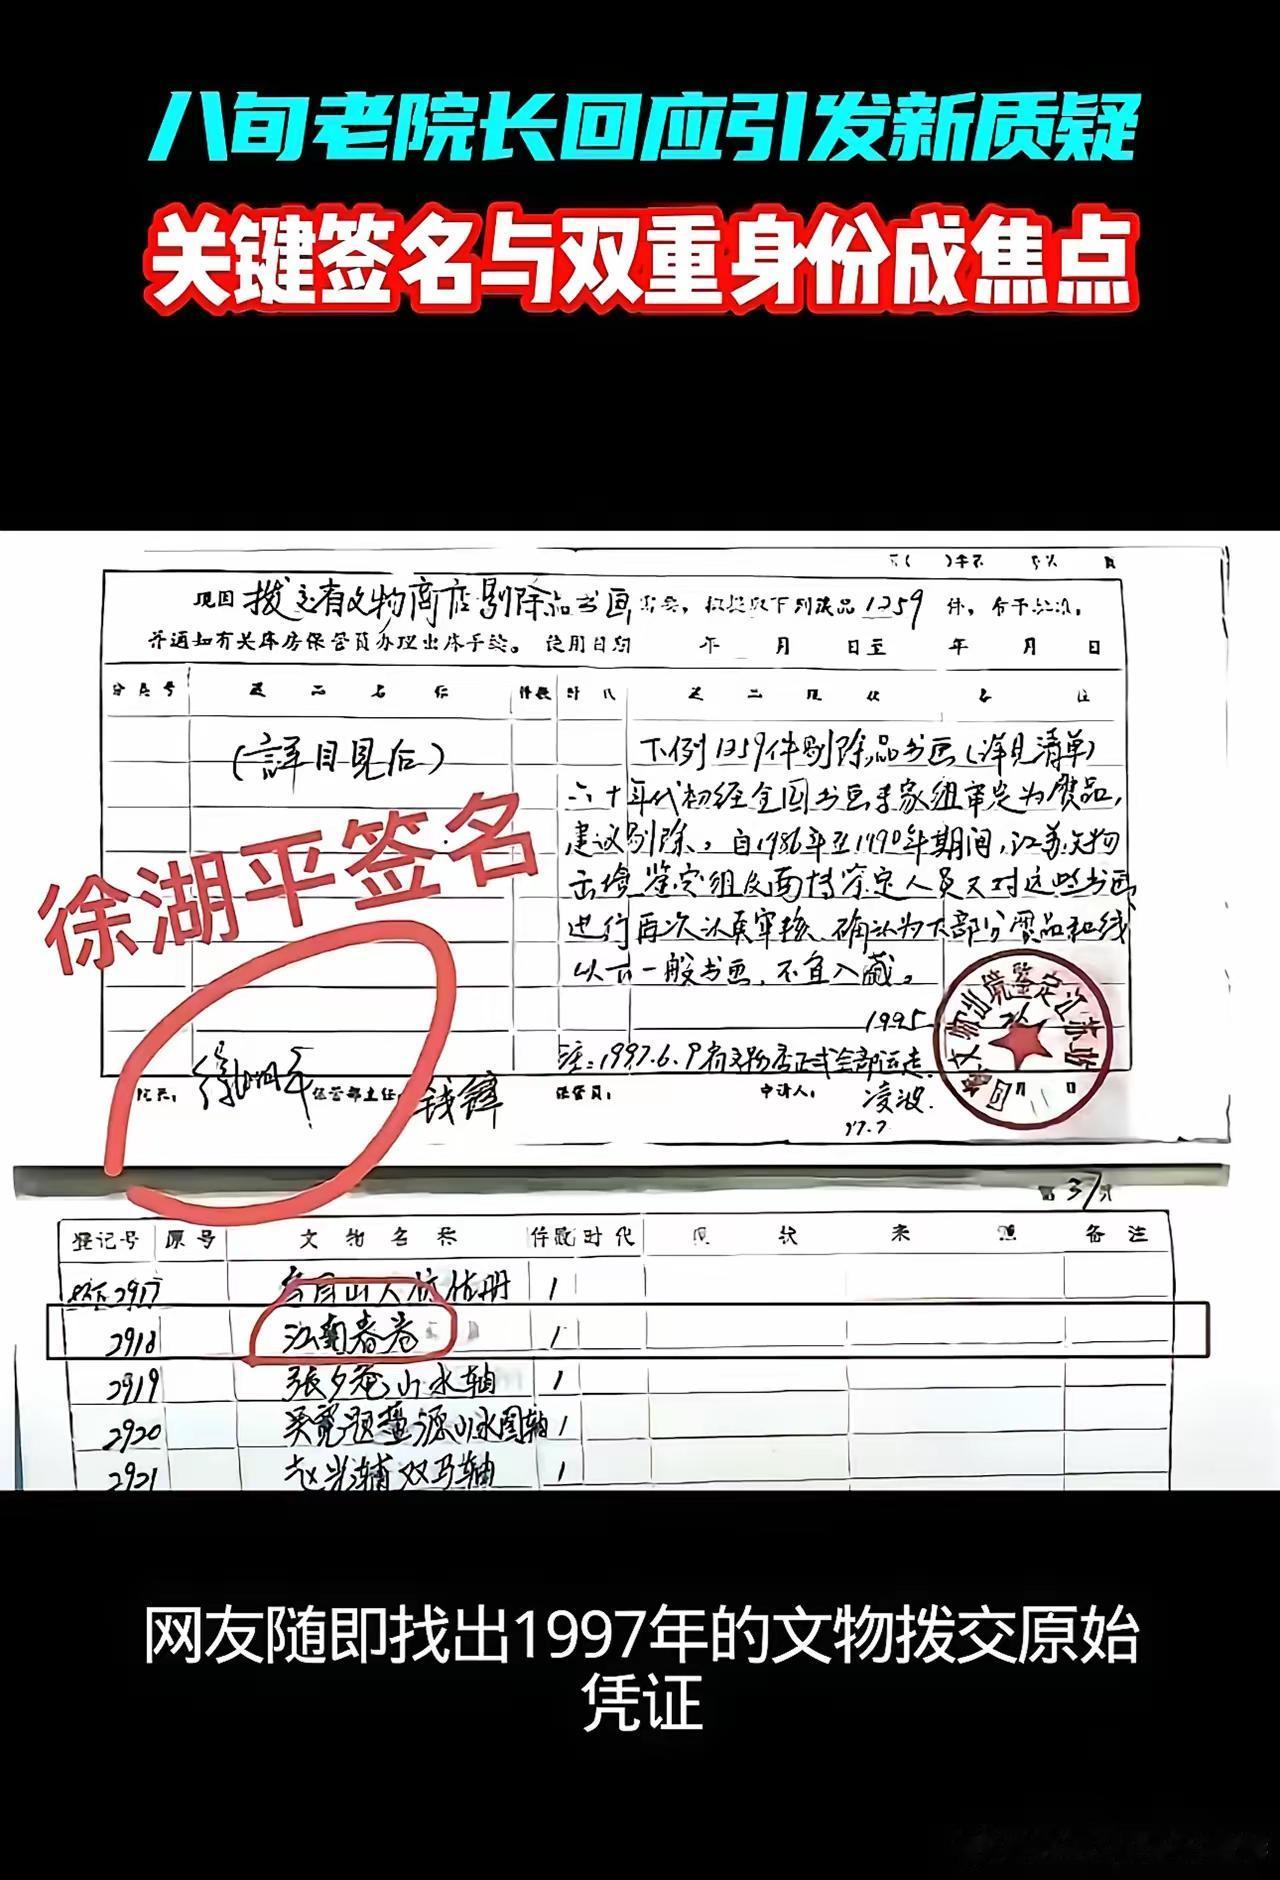 八旬老院长回应引发新质疑
关键签名与双重身份成焦点
现因 拨交省文物商店剔除品书画 需要,拟提取下列藏品 1259 件,希予批准。
并通知有关库房保管员办理出库手续。使用日期 年 月 日至 年 月 日
分类号 藏品名称 件数 时代 藏品现状 备注
(詳目見后)
下例1259件剔除品书画(详见清单)
六十年代初经全国书画专家组审定为贋品,
建议剔除。自1986年至1990年期间,江苏文物
出境鉴定组及南博鉴定人员又对这些书画
进行再次认真审核、确认为大部分贋品和线
以下一般书画,不宜入藏。
1995
注:1997.6.9省文物店正式全部运走
徐湖平签名
院长: 徐湖平 保管部主任: 钱锋 保管员: 申请人: 凌波
97.7
文物出境鉴定江苏站
第37页
登记号 原号 文物名称 件数 时代 现状 来源 备注
2917 1
2918 江南春卷 1
2919 張夕庵山水轴 1
2920 吴寬题董源山水图轴 1
2921 赵光辅双马轴 1
网友随即找出1997年的文物拨交原始
凭证